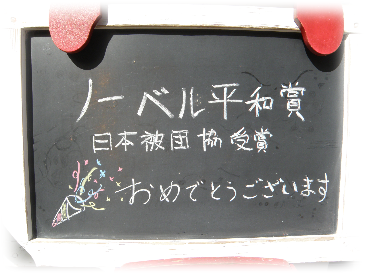 ノーベル平和賞
日本被団協受賞
おめでとうございます